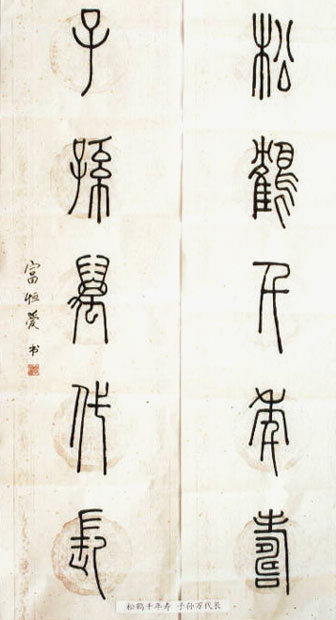 松鶴千年壽
子孫萬代長
富恒爱书
松鹤千年寿 子孙万代长